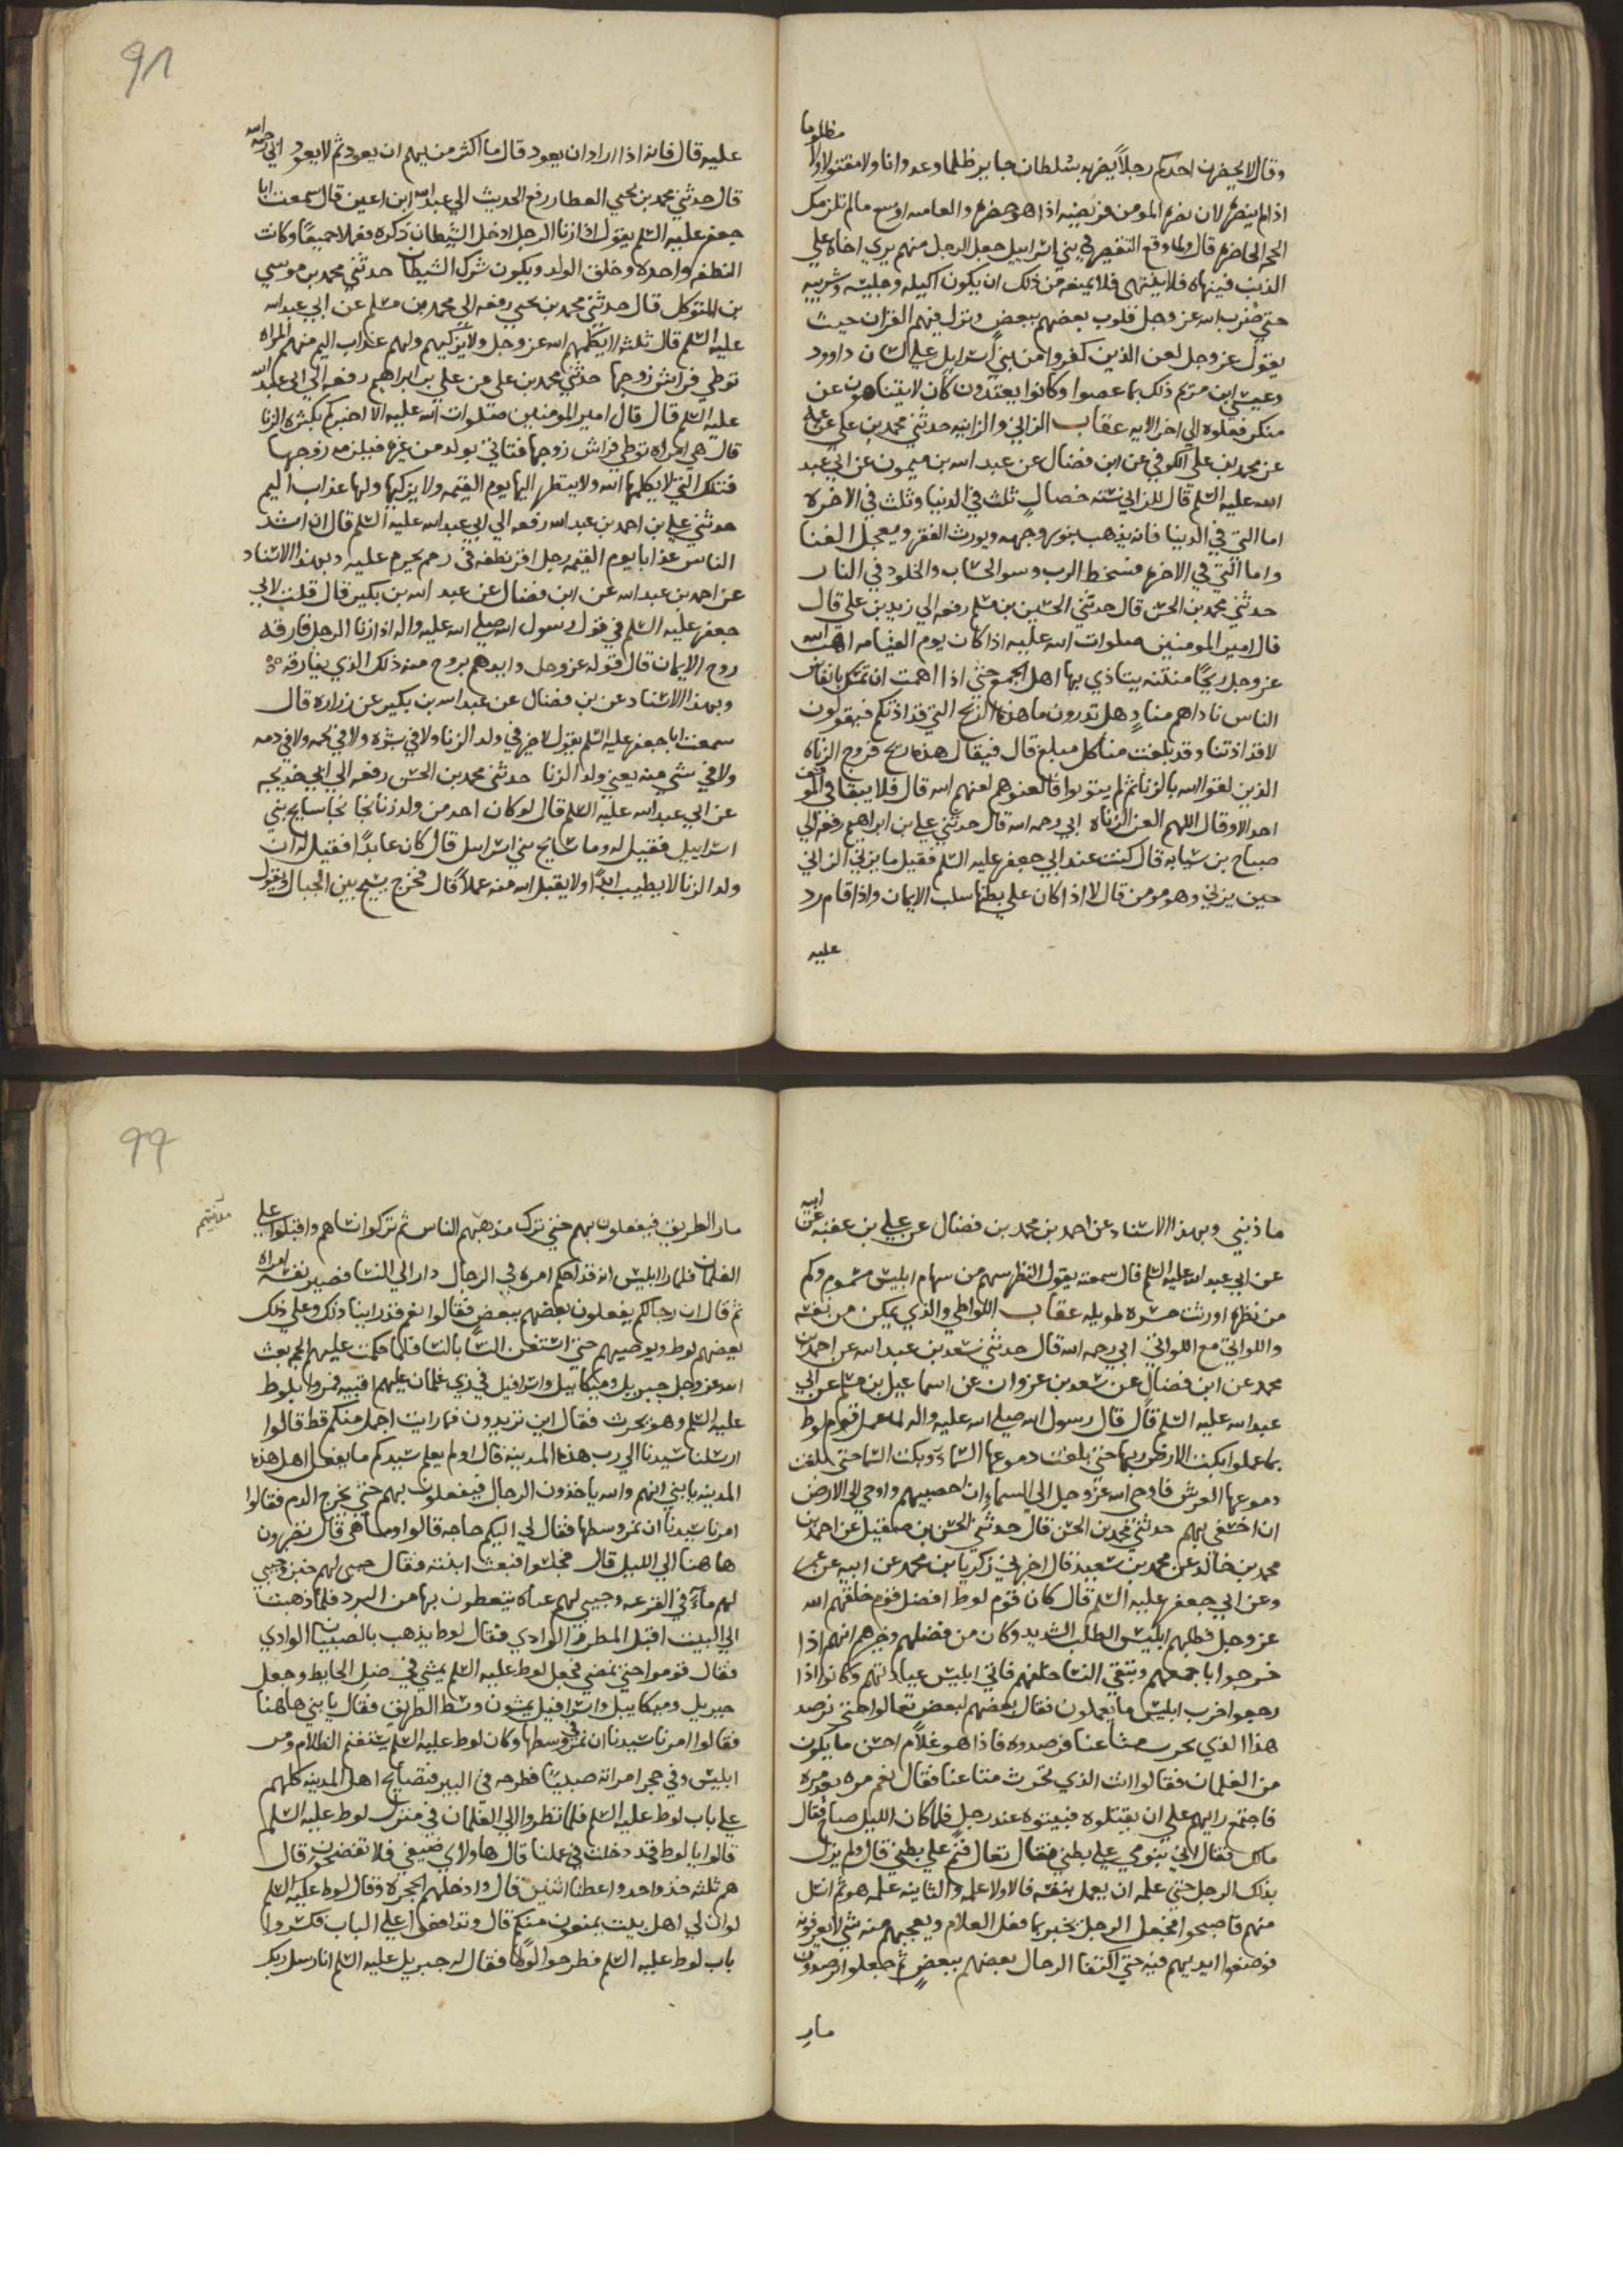 وقال لا يحضرن احدكم رجلاً يضربه سلطان جاير ظلما وعدوانا ولا مقتولا ولا مظلوما
اذا لم ينصره لان نصرة المومن فريضه اذا هو حضره والعامه اوسع مالم تلزمك
الحجه الحاضره قال ولما وقع التقصير في بني اسراييل جعل الرجل منهم يري اخاه علي
الذنب فينهاه فلا ينتهي فلا يمنعه من ذلك ان يكون اكيله وجليسه وشريبه
حتي ضرب الله عز وجل قلوب بعضهم ببعض ونزل فيهم القران حيث
يقول عز وجل لعن الذين كفروا من بني اسرايل علي لسان داوود
وعيسي ابن مريم ذلك بما عصوا وكانوا يعتدون كان لا يتناهون عن
منكر فعلوه الي اخر الايه عقاب الزاني والزانيه حدثني محمد بن علي عن عمه
عن محمد بن علي الكوفي عن ابن فضال عن عبد الله بن ميمون عن ابي عبد
الله عليه السلم قال للزاني سته خصال ثلث في الدنيا وثلث في الاخره
اما التي في الدنيا فانه يذهب بنور وجهه ويورث الفقر ويعجل الفنا
واما التي في الاخره فسخط الرب وسو الحساب والخلود في النار
حدثني محمد بن الحسن قال حدثني الحسين بن مسلم رفعه الي زيد بن علي قال
قال امير المومنين صلوات الله عليه اذا كان يوم القيامه اهب الله
عز وجل ريحًا منتنه يتاذي بها اهل الجمع حتي اذا اهمت ان تمسك بانفاس
الناس ناداهم منادٍ هل تدرون ما هذه الريح التي قد اذتكم فيقولون
لا قد اذتنا وقد بلغت منا كل مبلغ قال فيقال هذه ريح فروج الزناه
الذين لقوا الله بالزنا ثم لم يتوبوا فالعنوهم لعنهم الله قال فلا يبقا في الموقف
احد الا وقال اللهم العن الزناه ابي رحمه الله قال حدثني علي بن ابراهيم رفعه الي
صباح بن سيابه قال كنت عند ابي جعفر عليه السلم فقيل ما يزني الزاني
حين يزني وهو مومن قال لا اذا كان علي بطنها سلب الايمان واذا قام رد
عليه
91
عليه قال فانه اذا اراد ان يعود قال ما اكثر من يهم ان يعود ثم لا يعود ابي رحمه الله
قال حدثني محمد بن يحيي العطار رفع الحديث الي عبد الله ابن اعين قال سمعت ابا
جعفر عليه السلم يقول اذا زنا الرجل ادخل الشيطان ذكره فعملا جميعًا وكانت
النطفه واحده وخلق الولد ويكون شرك الشيطان حدثني محمد بن موسي
بن المتوكل قال حدثني محمد بن يحيي رفعه الي محمد بن مسلم عن ابي عبد الله
عليه السلم قال ثلثه لا يكلمهم الله عز وجل ولا يزكيهم ولهم عذاب اليم منهم المراه
توطي فراش زوجها حدثني محمد بن علي عن علي بن ابراهيم رفعه الي ابي عبد الله
عليه السلم قال قال امير المومنين صلوات الله عليه الا اخبركم بكثرة الزنا
قال هي امراه توطي فراش زوجها فتاتي بولد من غيره فيلزمه زوجها
فتلك التي لا يكلمها الله ولا ينظر اليها يوم القيمه ولا يزكيها ولها عذاب اليم
حدثني علي بن احمد بن عبد الله رفعه الي ابي عبد الله عليه السلم قال ان اشد
الناس عذابا يوم القيمه رجل اقر نطفه في رحم يحرم عليه وبهذا الاسناد
عن احمد بن عبد الله عن ابن فضال عن عبد الله بن بكير قال قلت لابي
جعفر عليه السلم في قول رسول الله صلي الله عليه واله اذا زنا الرجل فارقه
روح الايمان قال قوله عز وجل وايدهم بروح منه ذلك الذي يفارقه
وبهذا الاسناد عن بن فضال عن عبد الله بن بكير عن زراره قال
سمعت ابا جعفر عليه السلم يقول لا خير في ولد الزنا ولا في بشره ولا في لحمه ولا في دمه
ولا في شي منه يعني ولد الزنا حدثني محمد بن الحسن رفعه الي ابي خديجه
عن ابي عبد الله عليه السلم قال لو كان احد من ولد زنا نجا نجا سايح بني
اسراييل فقيل له وما سايح بني اسرايل قال كان عابدًا فقيل له ان
ولد الزنا لا يطيب ابدًا ولا يقبل الله منه عملاً قال فخرج يسيح بين الجبال ويقول
ما ذنبي وبهذا الاسناد عن احمد بن محمد بن فضال عن علي بن عقبه عن ابيه
عن ابي عبد الله عليه السلم قال سمعته يقول النظر سهم من سهام ابليس مسموم وكم
من نظره اورثت حسره طويله عقاب اللواطي والذي يمكن من نفسه
واللواتي مع اللواتي ابي رحمه الله قال حدثني سعد بن عبد الله عن احمد بن
محمد عن ابن فضال عن سعد بن عزوان عن اسماعيل بن مسلم عن ابي
عبد الله عليه السلم قال قال رسول الله صلي الله عليه واله لما عمل قوم لوط
بما عملوا بكت الارض ربها حتي بلغت دموعها السماء وبكت السما حتي بلغت
دموعها العرش فاوحي الله عز وجل الي السماء ان احصبيهم واوحي الي الارض
ان اخسفي بهم حدثني محمد بن الحسن قال حدثني الحسن بن عن احمد بن
محمد بن خالد عن محمد بن سعيد قال اخبرني زكريا بن محمد عن ابيه عن عمر
وعن ابي جعفر عليه السلم قال كان قوم لوط افضل قوم خلقهم الله
عز وجل فطلبهم ابليس الطلب الشديد وكان من فضلهم وخيرهم انهم اذا
خرجوا باجمعهم وتبقي النسا خلفهم فاتي ابليس عبادتهم وكانوا اذا
رجعوا اخرب ابليس ما يعملون فقال بعضهم لبعض تعالوا حتي نرصد
هذا الذي يخرب متاعنا فرصدوه فاذا هو غلام احسن ما يكون
من الغلمان فقالوا انت الذي تخرب متاعنا فقال نعم مره بعد مره
فاجتمع رايهم علي ان يقتلوه فبيتوه عند رجل فلما كان الليل صاح فقال
مالك فقال لابي ينومني علي بطنه فقال تعال فنم علي بطني قال ولم يزل
بذلك الرجل حتي علمه ان يعمل بنفسه فالاولا علمه والثانيه علمه هو ثم انسل
منهم فاصبحوا فجعل الرجل يخبر بما فعل الغلام ويعجبهم منه شي لا يعرفونه
فوضعوا ايديهم فيه حتي اكتفا الرجال بعضهم ببعضٍ ثم جعلوا يرصدون
مار
99
مار الطريق فيفعلون بهم حتي ترك مدينتهم الناس ثم تركوا نساهم واقبلوا علي
الغلمان فلما را ابليس انه قد احكم امره في الرجال دار الي النسا فصير نفسه امراه
ثم قال ان رجالكم يفعلون بعضهم ببعض فقالوا نعم قد راينا ذلك وعلي ذلك
يعظهم لوط ويوصيهم حتي استغني النسا بالنسا فلما حكمت عليهم الحجه بعث
الله عز وجل جبريل وميكاييل واسرافيل في زي غلمان عليهم اقبيه فمروا بلوط
عليه السلم وهو يحرث فقال اين تريدون فما رايت اجمل منكم قط قالوا
ارسلنا سيدنا الي رب هذه المدينه قال اولم يعلم سيدكم ما يفعل اهل هذه
المدينه يا بني انهم والله ياخذون الرجال فيفعلون بهم حتي يخرج الدم فقالوا
امرنا سيدنا ان نمر وسطها فقال لي اليكم حاجه قالوا وما هي قال تصبرون
ها هنا الي الليل قال فجلسوا فبعث ابنته فقال جيي لهم خبز وجيبي
لهم ماءً في القرعه وجيبي لهم عباه يتغطون بها من البرد فلما ذهبت
الي البيت اقبل المطر في الوادي فقال لوط يذهب بالصبيان الوادي
فقال قوموا حتي نمضي فجعل لوط عليه السلم يمشي في ضل الحايط وجعل
جبريل وميكاييل واسرافيل يمشون وسط الطريق فقال يا بني هاهنا
فقالوا امرنا سيدنا ان نمر في وسطها وكان لوط عليه السلم يستغنم الظلام ومر
ابليس وفي حجر امراته صبيًا فطرحه في البير فتصايح اهل المدينه كلهم
علي باب لوط عليه السلم فلما نظروا الي الغلمان في منزل لوط عليه السلم
قالوا يا لوط قد دخلت في عملنا قال هاولاي ضيفي فلا تفضحون قال
هم ثلثه خذ واحد واعطنا اثنين قال وادخلهم الحجره وقال لوط عليه السلم
لو ان لي اهل بيت يمنعون منكم قال وتدافعوا علي الباب فكسروا
باب لوط عليه السلم فطرحوا لوطًا فقال له جبريل عليه السلم انا رسل ربك